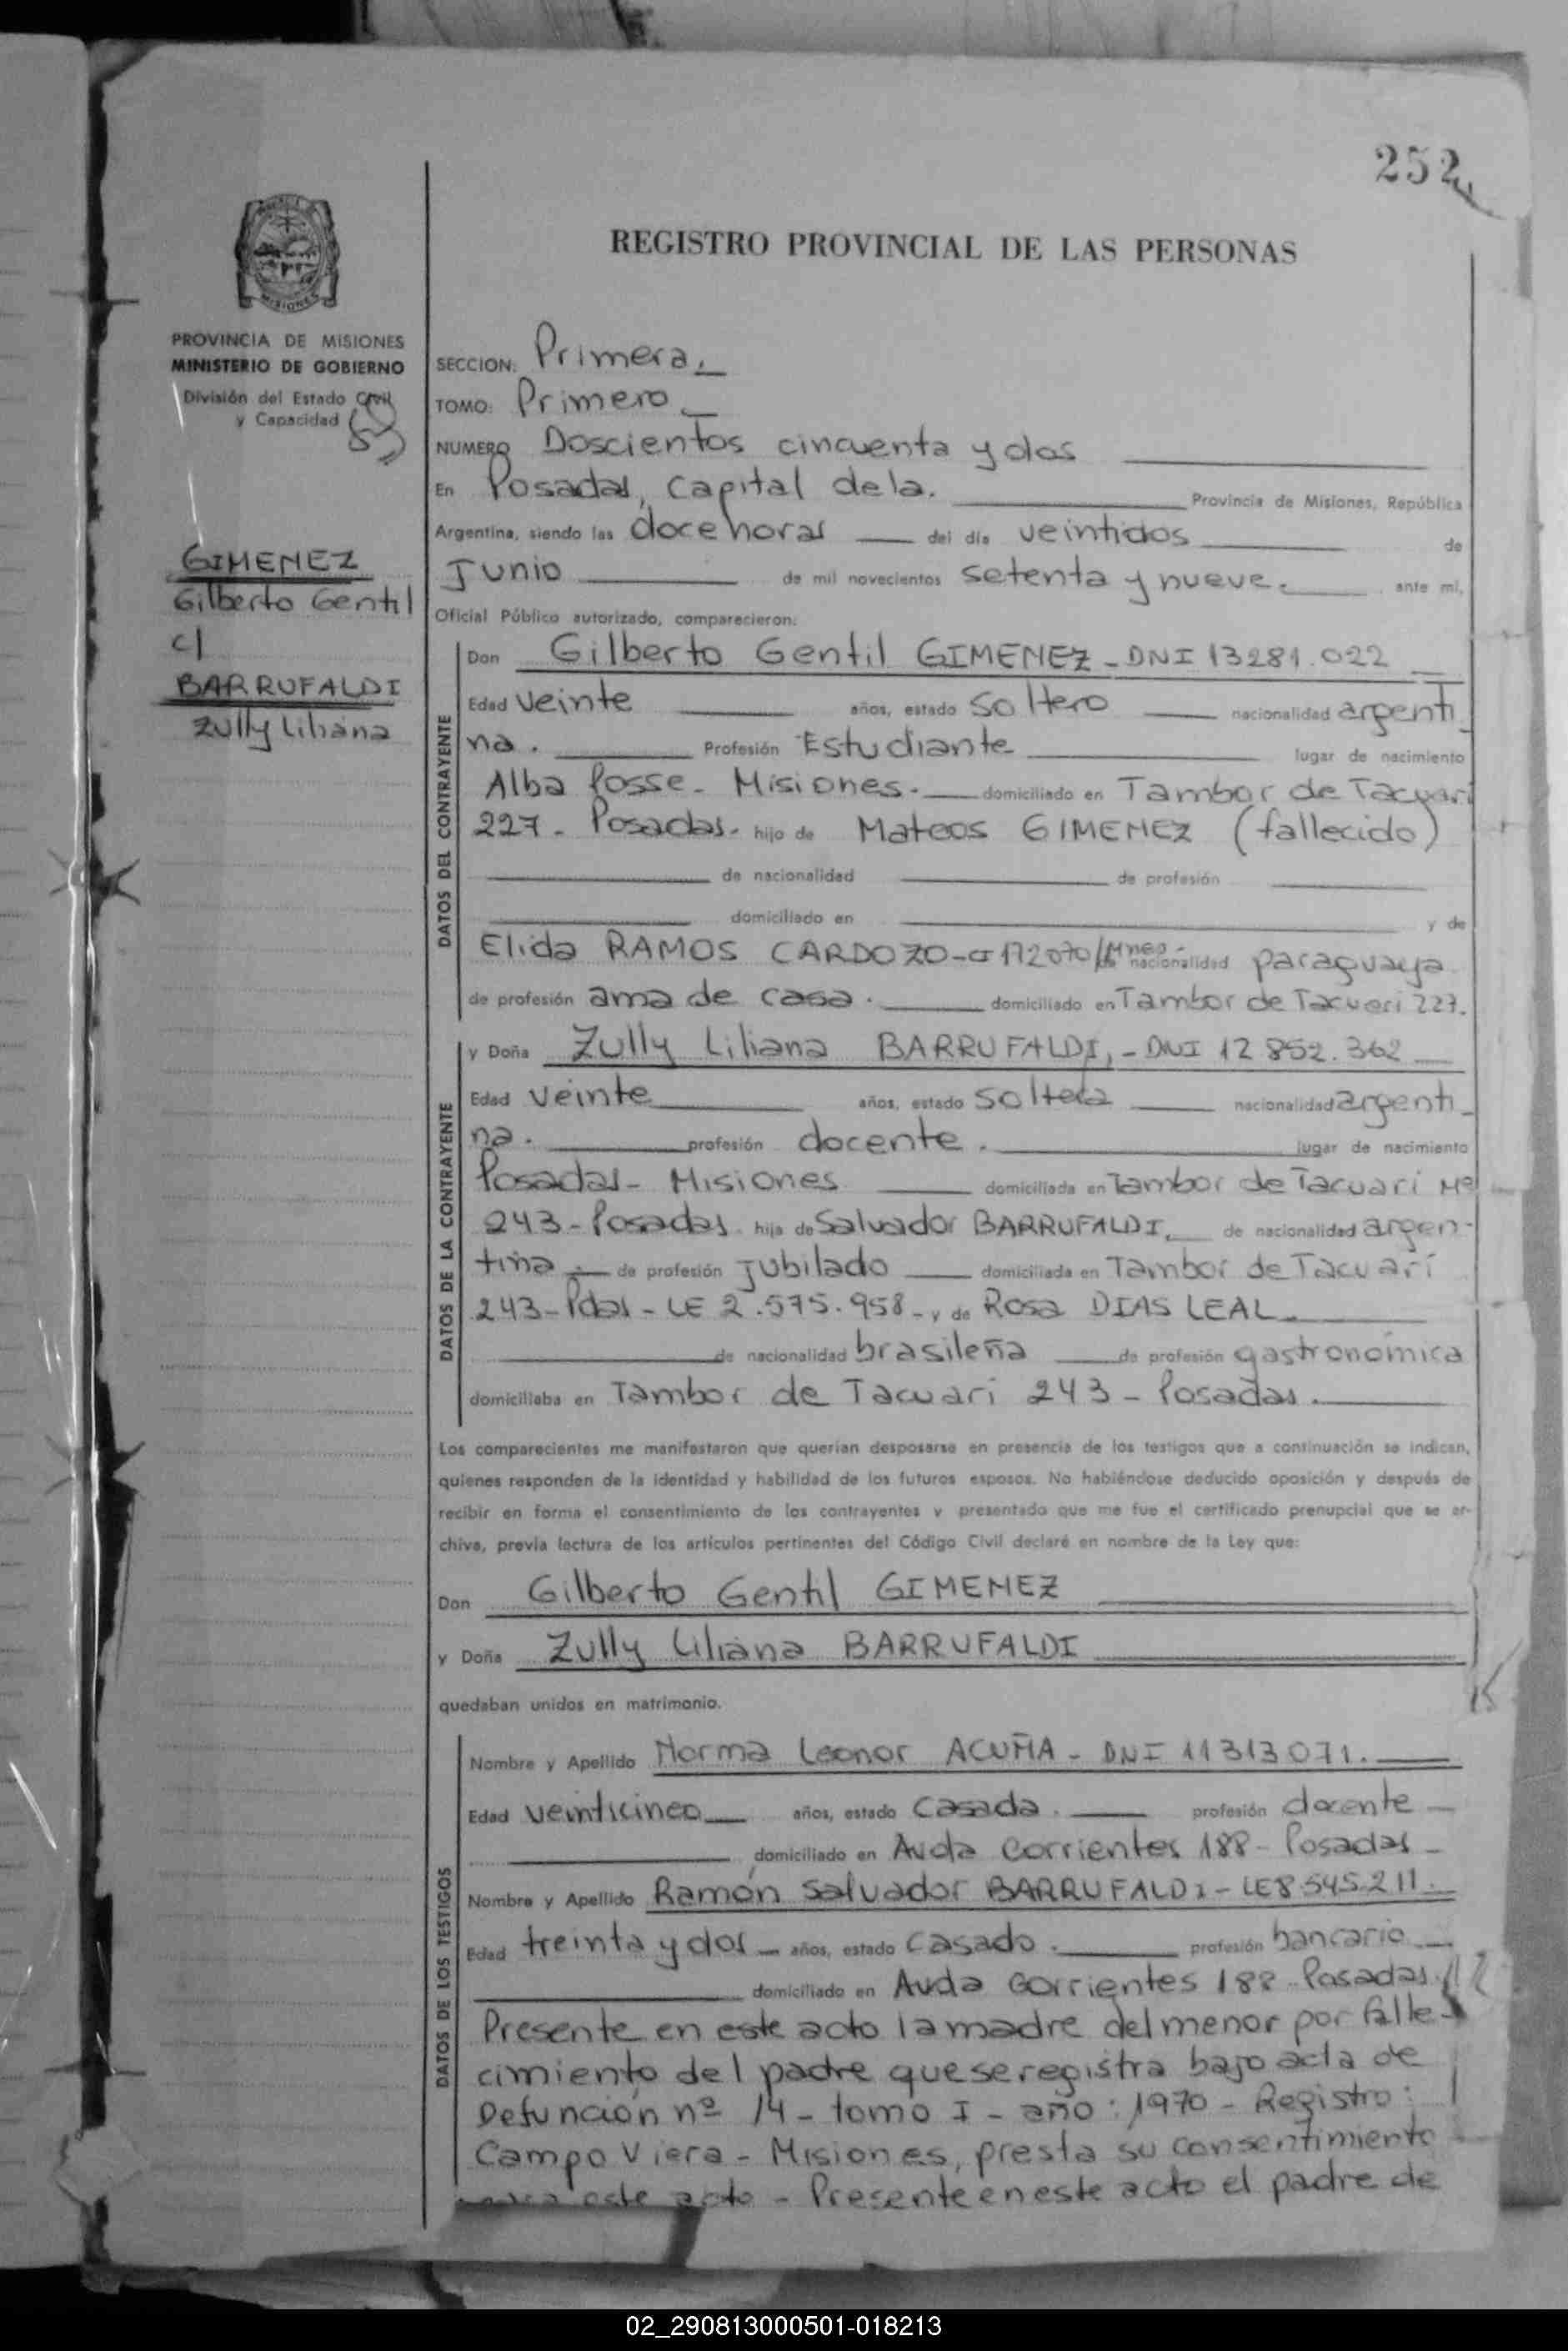 252
REGISTRO PROVINCIAL DE LAS PERSONAS
MISIONES
PROVINCIA DE MISIONES
MINISTERIO DE GOBIERNO
División del Estado Civil
y Capacidad
GIMENEZ
Gilberto Gentil
c/
BARRUFALDI
Zully Liliana
SECCION: Primera.
TOMO: Primero
NUMERO Doscientos cincuenta y dos
En Posadas, Capital de la. Provincia de Misiones, República
Argentina, siendo las doce horas del día veintidos de
Junio de mil novecientos setenta y nueve. ante mí,
Oficial Público autorizado, comparecieron:
DATOS DEL CONTRAYENTE
Don Gilberto Gentil GIMENEZ - DNI 13281.022
Edad veinte años, estado soltero nacionalidad argenti
na. Profesión Estudiante lugar de nacimiento
Alba Posse - Misiones. domiciliado en Tambor de Tacuari
227 - Posadas. hijo de Mateos GIMENEZ (fallecido)
de nacionalidad de profesión
domiciliado en y de
Elida RAMOS CARDOZO - CI 172070/Mnes - de nacionalidad paraguaya
de profesión ama de casa. domiciliado en Tambor de Tacuari 227.
DATOS DE LA CONTRAYENTE
y Doña Zully Liliana BARRUFALDI, - DNI 12 852.362
Edad veinte años, estado soltera nacionalidad argenti
na. profesión docente. lugar de nacimiento
Posadas - Misiones domiciliada en Tambor de Tacuari Nº
243 - Posadas. hija de Salvador BARRUFALDI, de nacionalidad argen-
tina. de profesión jubilado domiciliada en Tambor de Tacuari
243 - Pdas - LE 2.575.958 - y de Rosa DIAS LEAL
de nacionalidad brasileña de profesión gastronómica
domiciliaba en Tambor de Tacuari 243 - Posadas.
Los comparecientes me manifestaron que querían desposarse en presencia de los testigos que a continuación se indican,
quienes responden de la identidad y habilidad de los futuros esposos. No habiéndose deducido oposición y después de
recibir en forma el consentimiento de los contrayentes y presentado que me fue el certificado prenupcial que se ar-
chiva, previa lectura de los artículos pertinentes del Código Civil declaré en nombre de la Ley que:
Don Gilberto Gentil GIMENEZ
y Doña Zully Liliana BARRUFALDI
quedaban unidos en matrimonio.
DATOS DE LOS TESTIGOS
Nombre y Apellido Norma Leonor ACUÑA - DNI 11313071.
Edad veinticinco años, estado casada. profesión docente
domiciliado en Avda Corrientes 188 - Posadas
Nombre y Apellido Ramón Salvador BARRUFALDI - LE 8.545.211.
Edad treinta y dos años, estado casado. profesión bancario
domiciliado en Avda Corrientes 188 - Posadas
Presente en este acto la madre del menor por falle-
cimiento del padre que se registra bajo acta de
Defunción nº 14 - tomo I - año: 1970 - Registro:
Campo Viera - Misiones, presta su consentimiento
para este acto - Presente en este acto el padre de
02_290813000501-018213